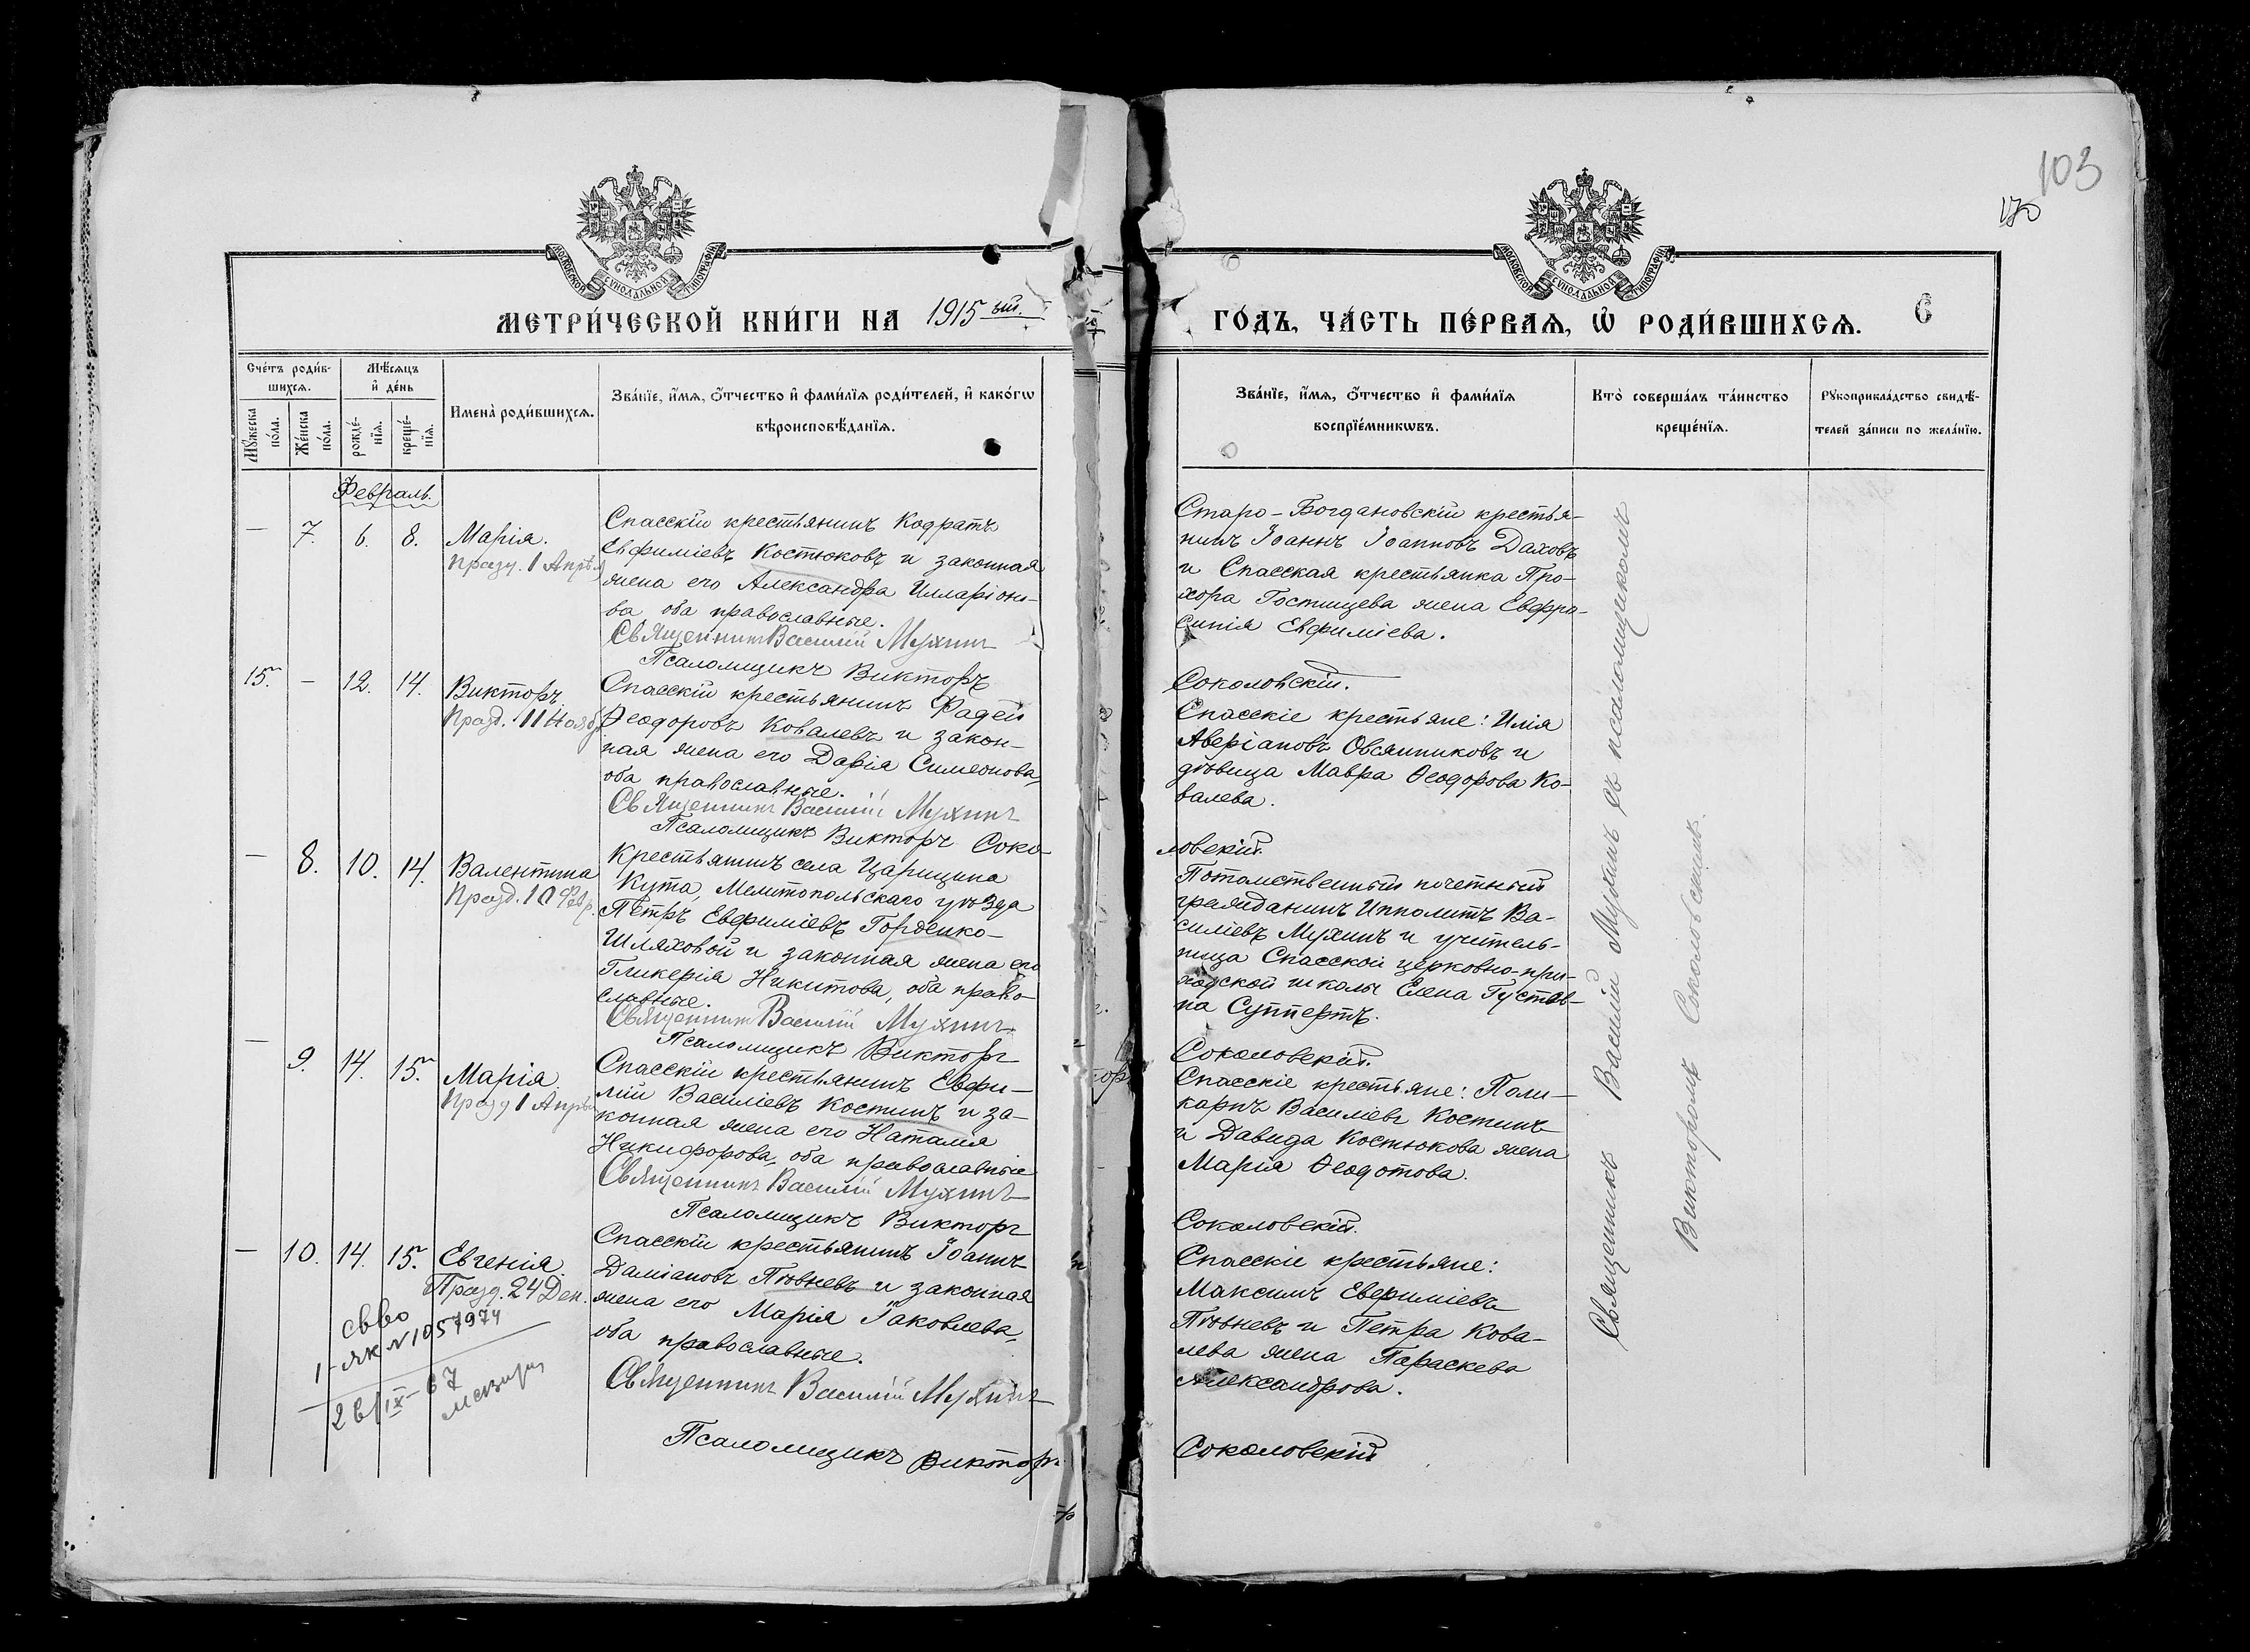 103
170
МОСКОВСКОЙ СѴНОДАЛЬНОЙ ТИПОГРАФІИ
МОСКОВСКОЙ СѴНОДАЛЬНОЙ ТИПОГРАФІИ
МЕТРИ́ЧЕСКОЙ КНИ́ГИ НА 1915 ый.
ГО́ДЪ, ЧА́СТЬ ПЕ́РВАѦ, Ѡ҆ РОДИ́ВШИХСѦ. 6
Сче́тъ роди́в-
шихсѧ.
Мѣ́сѧцъ
и҆ де́нь
Мꙋ́жеска
по́ла.
Же́нска
по́ла.
рожде́-
нїѧ.
креще́-
нїѧ.
Имена̀ роди́вшихсѧ.
Зва́нїе, и҆́мѧ, ѻ҆́тчество и҆ фами́лїѧ роди́телей, и҆ како́гѡ
вѣроисповѣ́данїѧ.
Зва́нїе, и҆́мѧ, ѻ҆́тчество и҆ фами́лїѧ
воспрїе́мникѡвъ.
Кто̀ соверша́лъ та́инство
креще́нїѧ.
Рꙋкоприкла́дство свидѣ́-
телей за́писи по жела́нїю.
Февраль.
— 7. 6. 8. Марія.
Празд. 1 Апрѣл
Спасскій крестьянинъ Кодратъ
Евфиміевъ Костюковъ и законная
жена его Александра Илларіоно-
ва оба православные.
Священникъ Василій Мухинъ
Псаломщикъ Викторъ
Старо-Богдановскій крестья-
нинъ Іоаннъ Іоанновъ Даховъ
и Спасская крестьянка Про-
хора Гостищева жена Евфро-
синія Евфиміева.
Соколовскій.
15. — 12. 14. Викторъ
Празд. 11 Нояб.
Спасскій крестьянинъ Фадей
Ѳеодоровъ Ковалевъ и закон-
ная жена его Дарія Симеонова,
оба православные.
Священникъ Василій Мухинъ
Псаломщикъ Викторъ Соко-
Спасскіе крестьяне: Илія
Аверіановъ Овсянниковъ и
дѣвица Мавра Ѳеодорова Ко-
валева.
ловскій.
— 8. 10. 14. Валентина
Празд. 10 Февр.
Крестьянинъ села Царицына
Кута, Мелитопольскаго уѣзда
Петръ Евфиміевъ Горденко-
Шляховой и законная жена его
Гликерія Никитова, оба право-
славные.
Священникъ Василій Мухинъ
Псаломщикъ Викторъ
Потомственный почетный
гражданинъ Ипполитъ Ва-
силіевъ Мухинъ и учитель-
ница Спасской церковно-при-
ходской школы Елена Густав-
на Суппертъ.
Соколовскій.
— 9. 14. 15. Марія.
Празд 1 Апрѣл
Спасскій крестьянинъ Евфи-
мій Василіевъ Костинъ и за-
конная жена его Наталія
Никифорова, оба православные
Священникъ Василій Мухинъ
Псаломщикъ Викторъ
Спасскіе крестьяне: Поли-
карпъ Василіевъ Костинъ
и Давида Костюкова жена
Марія Ѳеодотова.
Соколовскій.
— 10. 14. 15. Евгенія.
Празд. 24 Дек.
Спасскій крестьянинъ Іоаннъ
Даміановъ Пѣвневъ и законная
жена его Марія Іаковлева,
оба православные.
Священникъ Василій Мухинъ
Псаломщикъ Викторъ
Спасскіе крестьяне:
Максимъ Евфиміевъ
Пѣвневъ и Петра Кова-
лева жена Параскева
Александрова.
Соколовскій
св во
1-ЯК № 1057974
26/IX-67
Священникъ Василій Мухинъ съ псаломщикомъ
Викторомъ Соколовскимъ.